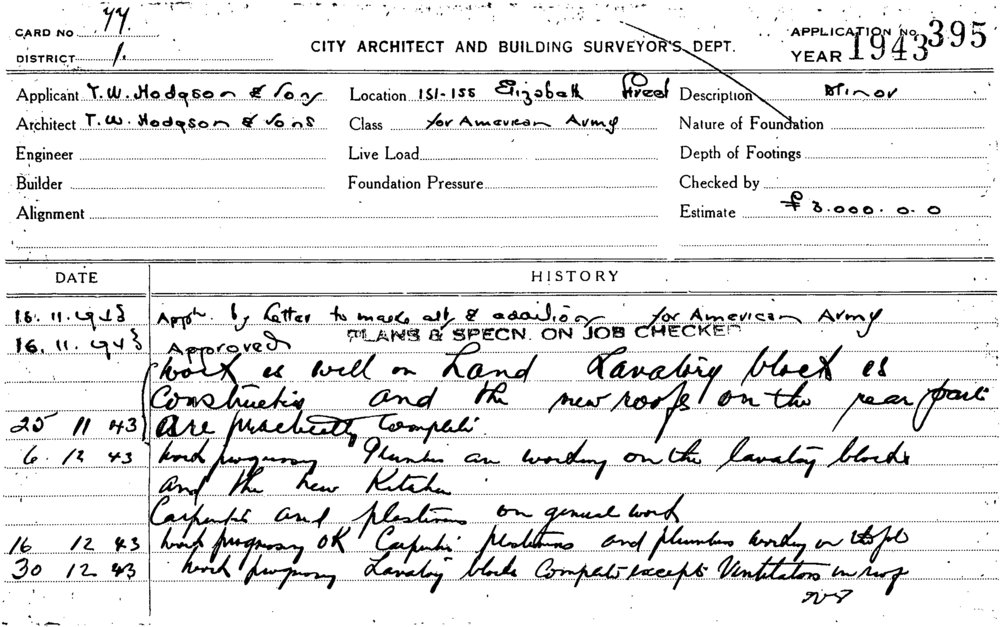 CARD No 77.
DISTRICT 1.
CITY ARCHITECT AND BUILDING SURVEYOR'S DEPT.
APPLICATION No. 395
YEAR 1943
Applicant T.W. Hodgson & Sons
Location 151-155 Elizabeth Street
Description Minor
Architect T.W. Hodgson & Sons
Class for American Army
Nature of Foundation
Engineer
Live Load
Depth of Footings
Builder
Foundation Pressure
Checked by
Alignment
Estimate £3.000.0.0
DATE
HISTORY
16.11.1943 Appn. by Letter to make alt. & addition for American Army
PLANS & SPECN. ON JOB CHECKED
16.11.1943 Approved
Work is well on Land Lavatory block is
Constructing and the new roofs on the rear part
25 11 43 are practically complete.
6. 12 43 Work progressing Plumbers are working on the lavatory blocks
and the new Kitchen
Carpenters and plasterers on general work
16 12 43 Work progressing OK Carpenters plasterers and plumbers working on job
30 12 43 Work progressing Lavatory blocks Complete except Ventilators in roof